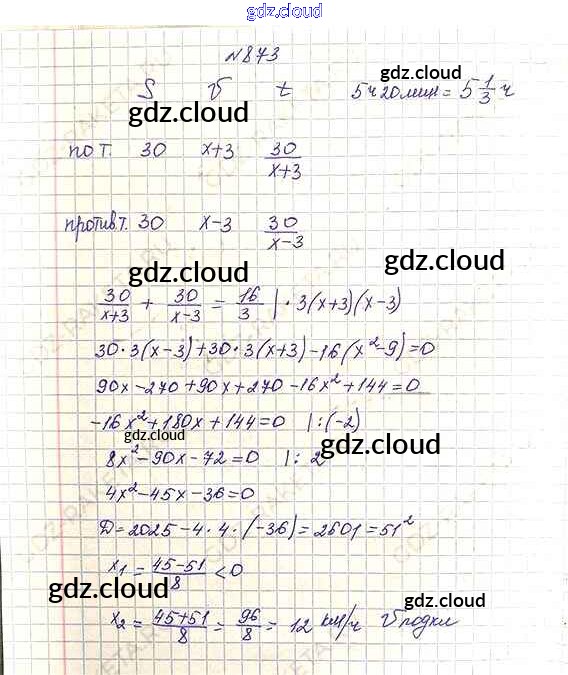 gdz.cloud
№873
S V t 5 ч 20 мин = 5 1/3 ч
gdz.cloud
gdz.cloud
по т. 30 x+3 30/(x+3)
против т. 30 x-3 30/(x-3)
gdz.cloud
gdz.cloud
30/(x+3) + 30/(x-3) = 16/3 |·3(x+3)(x-3)
30·3(x-3)+30·3(x+3)-16(x²-9)=0
90x-270+90x+270-16x²+144=0
-16x²+180x+144=0 |:(-2)
gdz.cloud
gdz.cloud
8x²-90x-72=0 |:2
4x²-45x-36=0
D=2025-4·4·(-36)=2601=51²
x₁=(45-51)/8<0
gdz.cloud
gdz.cloud
x₂=(45+51)/8=96/8=12 км/ч V лодки